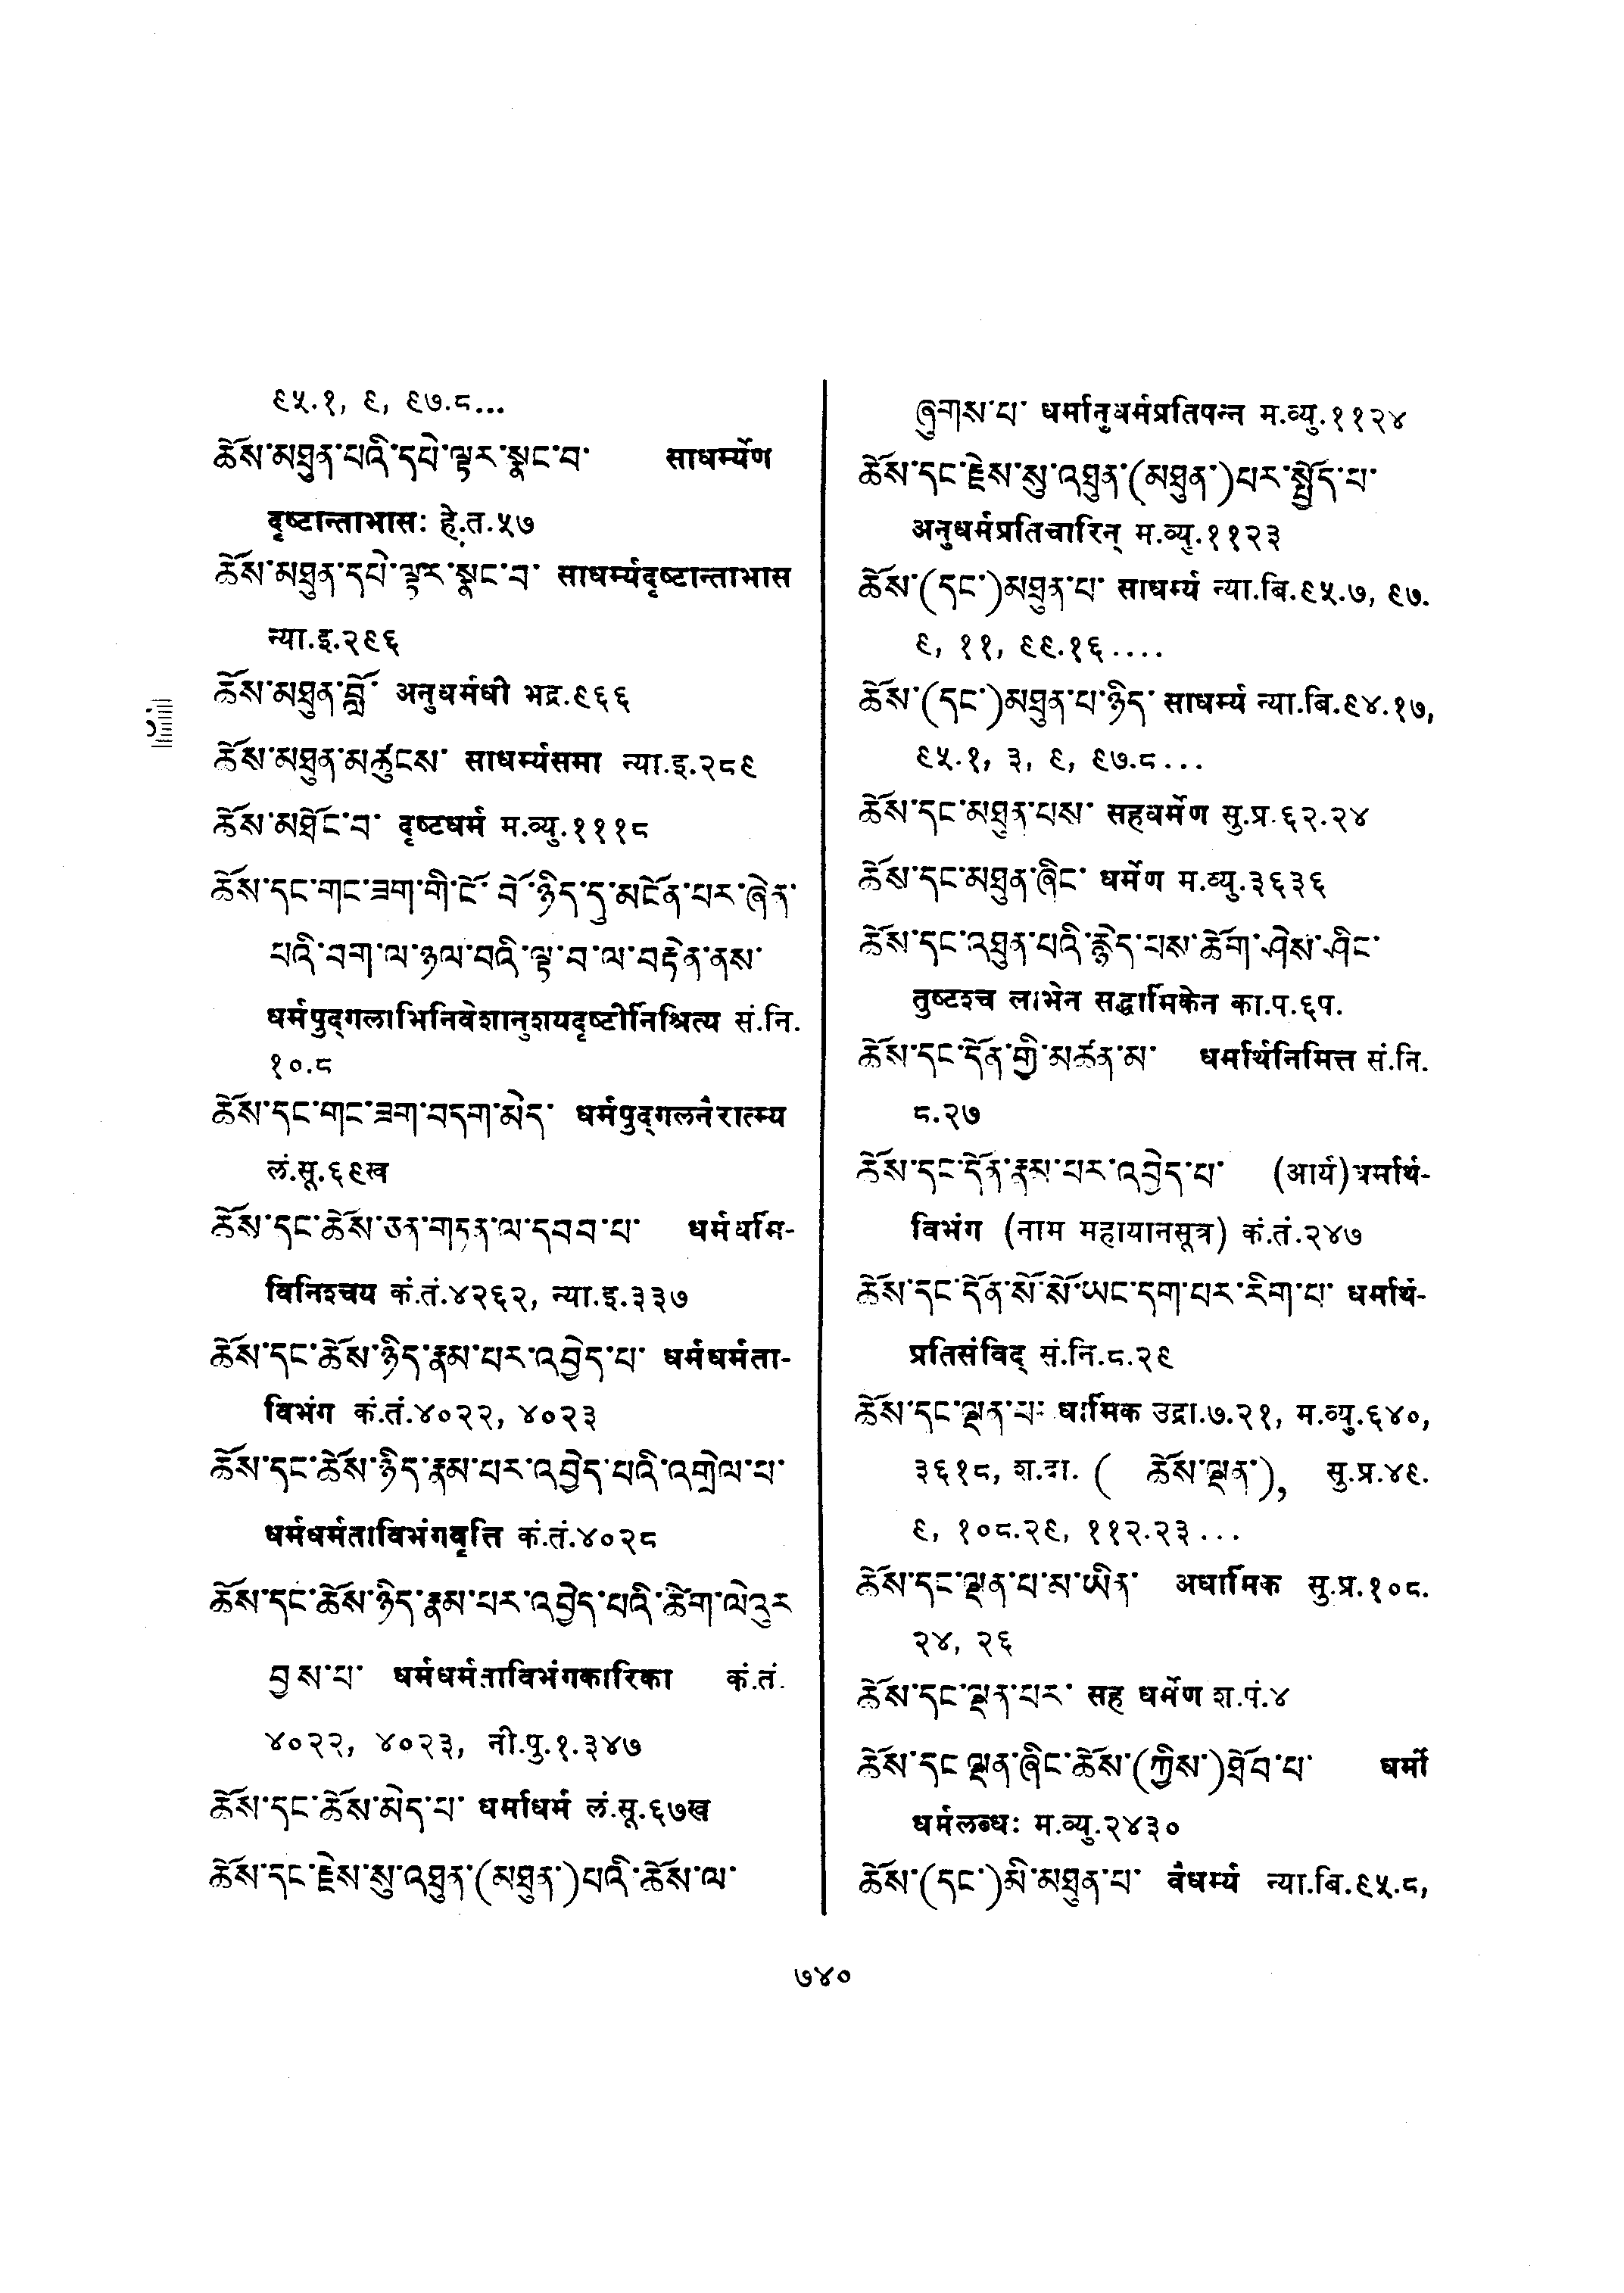 ९५.१, ९, ९७.८...
ཆོས་མཐུན་པའི་དཔེ་ལྟར་སྣང་བ་ साधर्म्येण
दृष्टान्ताभासः हे.त.५७
ཆོས་མཐུན་དཔེ་ལྟར་སྣང་བ་ साधर्म्यदृष्टान्ताभास
न्या.इ.२९६
ཆོས་མཐུན་བློ་ अनुधर्मधी भद्र.९६६
ཆོས་མཐུན་མཚུངས་ साधर्म्यसमा न्या.इ.२८९
ཆོས་མཐོང་བ་ दृष्टधर्म म.व्यु.१११८
ཆོས་དང་གང་ཟག་གི་ངོ་བོ་ཉིད་དུ་མངོན་པར་ཞེན་
པའི་བག་ལ་ཉལ་བའི་ལྟ་བ་ལ་བརྟེན་ནས་
धर्मपुद्गलाभिनिवेशानुशयदृष्टीर्निश्रित्य सं.नि.
१०.८
ཆོས་དང་གང་ཟག་བདག་མེད་ धर्मपुद्गलनैरात्म्य
लं.सू.६९ख
ཆོས་དང་ཆོས་ཅན་གཏན་ལ་དབབ་པ་ धर्मधर्मि-
विनिश्चय कं.तं.४२६२, न्या.इ.३३७
ཆོས་དང་ཆོས་ཉིད་རྣམ་པར་འབྱེད་པ་ धर्मधर्मता-
विभंग कं.तं.४०२२, ४०२३
ཆོས་དང་ཆོས་ཉིད་རྣམ་པར་འབྱེད་པའི་འགྲེལ་པ་
धर्मधर्मताविभंगवृत्ति कं.तं.४०२८
ཆོས་དང་ཆོས་ཉིད་རྣམ་པར་འབྱེད་པའི་ཚིག་ལེའུར
བྱས་པ་ धर्मधर्मताविभंगकारिका कं.तं.
४०२२, ४०२३, नी.पु.१.३४७
ཆོས་དང་ཆོས་མེད་པ་ धर्माधर्म लं.सू.६७ख
ཆོས་དང་རྗེས་སུ་འཐུན་(མཐུན་)པའི་ཆོས་ལ་
ཞུགས་པ་ धर्मानुधर्मप्रतिपन्न म.व्यु.११२४
ཆོས་དང་རྗེས་སུ་འཐུན་(མཐུན་)པར་སྤྱོད་པ་
अनुधर्मप्रतिचारिन् म.व्यु.११२३
ཆོས་(དང་)མཐུན་པ་ साधर्म्य न्या.बि.९५.७, ९७.
९, ११, ९९.१६....
ཆོས་(དང་)མཐུན་པ་ཉིད་ साधर्म्य न्या.बि.९४.१७,
९५.१, ३, ९, ९७.८...
ཆོས་དང་མཐུན་པས་ सहधर्मेण सु.प्र.६२.२४
ཆོས་དང་མཐུན་ཞིང་ धर्मेण म.व्यु.३६३६
ཆོས་དང་འཐུན་པའི་རྙེད་པས་ཆོག་ཤེས་ཤིང་
तुष्टश्च लाभेन सद्धार्मिकेन का.प.६प.
ཆོས་དང་དོན་གྱི་མཚན་མ་ धर्मार्थनिमित्त सं.नि.
८.२७
ཆོས་དང་དོན་རྣམ་པར་འབྱེད་པ་ (आर्य)धर्मार्थ-
विभंग (नाम महायानसूत्र) कं.तं.२४७
ཆོས་དང་དོན་སོ་སོ་ཡང་དག་པར་རིག་པ་ धर्मार्थ-
प्रतिसंविद् सं.नि.८.२९
ཆོས་དང་ལྡན་པ་ धार्मिक उद्रा.७.२१, म.व्यु.६४०,
३६१८, श.को. ( ཆོས་ལྡན་), सु.प्र.४९.
९, १०८.२९, ११२.२३...
ཆོས་དང་ལྡན་པ་མ་ཡིན་ अधार्मिक सु.प्र.१०८.
२४, २६
ཆོས་དང་ལྡན་པར་ सह धर्मेण श.पं.४
ཆོས་དང་ལྡན་ཞིང་ཆོས་(ཀྱིས་)ཐོབ་པ་ धर्मो
धर्मलब्धः म.व्यु.२४३०
ཆོས་(དང་)མི་མཐུན་པ་ वैधर्म्य न्या.बि.९५.८,
७४०